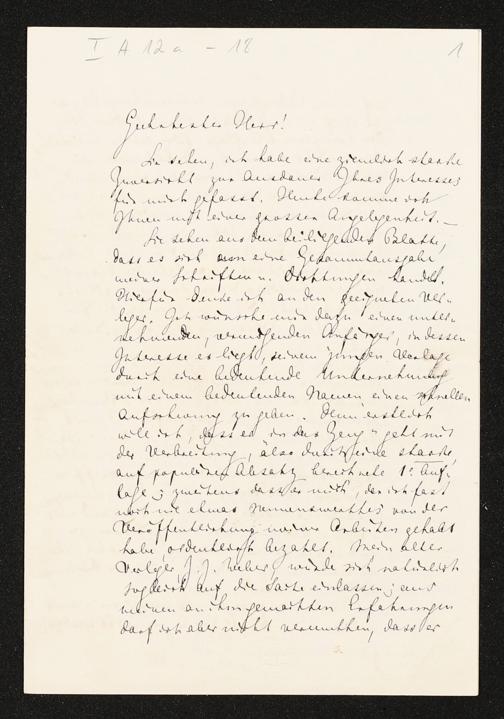 I A 12a - 18
1
Geehrtester Herr!
Sie sehen, ich habe eine ziemlich starke
Zuversicht zur Ausdauer Ihres Interesses
für mich gefasst. Heute komme ich
Ihnen mit einer grossen Angelegenheit. —
Sie sehen aus dem beiliegenden Blatte,
dass es sich um eine Gesammtausgabe
meiner Schriften u. Dichtungen handelt.
Hierfür denke ich an den geeigneten Ver-
leger. Ich wünsche mir dazu einen unter-
nehmenden, vermögenden Anfänger, in dessen
Interesse es liegt, seinem jungen Verlage
durch eine bedeutende Unternehmung
mit einem bedeutenden Namen einen schnellen
Aufschwung zu geben. Denn erstlich
will ich, dass es in das Zeug geht mit
der Verbreitung, also durch eine starke,
auf populären Absatz berechnete 1e Auf-
lage; zweitens dass er mich, der ich fast
noch nie etwas Nennenswerthes von der
Veröffentlichung meiner Arbeiten gehabt
habe, ordentlich bezahlt. Mein alter
Verleger, J. J. Weber, würde sich natürlich
sogleich auf die Sache einlassen; aus
meinen an ihm gemachten Erfahrungen
darf ich aber nicht vermuthen, dass er